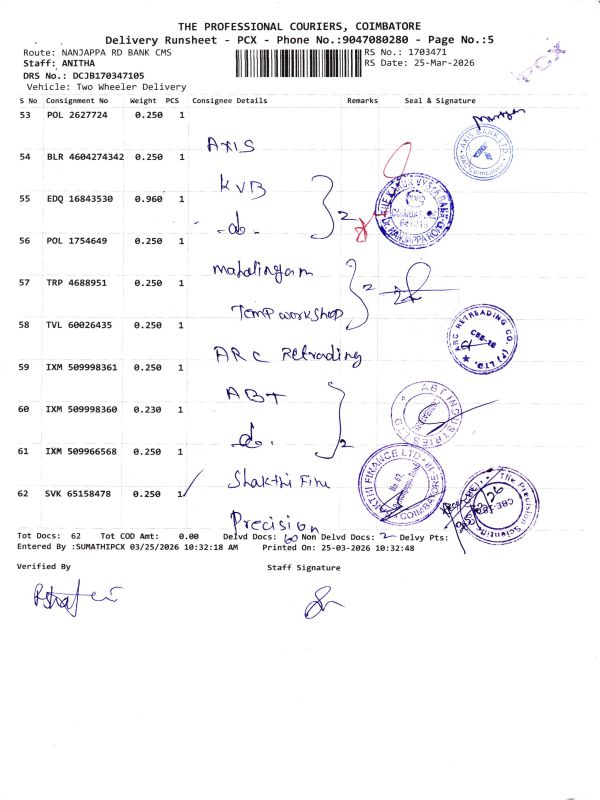 THE PROFESSIONAL COURIERS, COIMBATORE
Delivery Runsheet - PCX - Phone No.:9047080280 - Page No.:5
Route: NANJAPPA RD BANK CMS
RS No.: 1703471
Staff: ANITHA
RS Date: 25-Mar-2026
PCX
DRS No.: DCJB170347105
Vehicle: Two Wheeler Delivery
S No Consignment No Weight PCS Consignee Details Remarks Seal & Signature
53 POL 2627724 0.250 1
Axis
AXIS BANK LTD
54 BLR 4604274342 0.250 1
KVB
55 EDQ 16843530 0.960 1
-do-
2
56 POL 1754649 0.250 1
Mahalingam
57 TRP 4688951 0.250 1
Temp workshop
2
58 TVL 60026435 0.250 1
ARC Retrading
ARC RETREADING CO. (P) LTD.
CBE-18
59 IXM 509998361 0.250 1
ABT
60 IXM 509998360 0.230 1
do.
2
ABT INDUSTRIES LTD
61 IXM 509966568 0.250 1
Shakthi Fin
SAKTHI FINANCE LTD
62 SVK 65158478 0.250 1
Precision
The Precision Scientific
Tot Docs: 62 Tot COD Amt: 0.00 Delvd Docs: 60 Non Delvd Docs: 2 Delvy Pts:
Entered By :SUMATHIPCX 03/25/2026 10:32:18 AM Printed On: 25-03-2026 10:32:48
Verified By Staff Signature